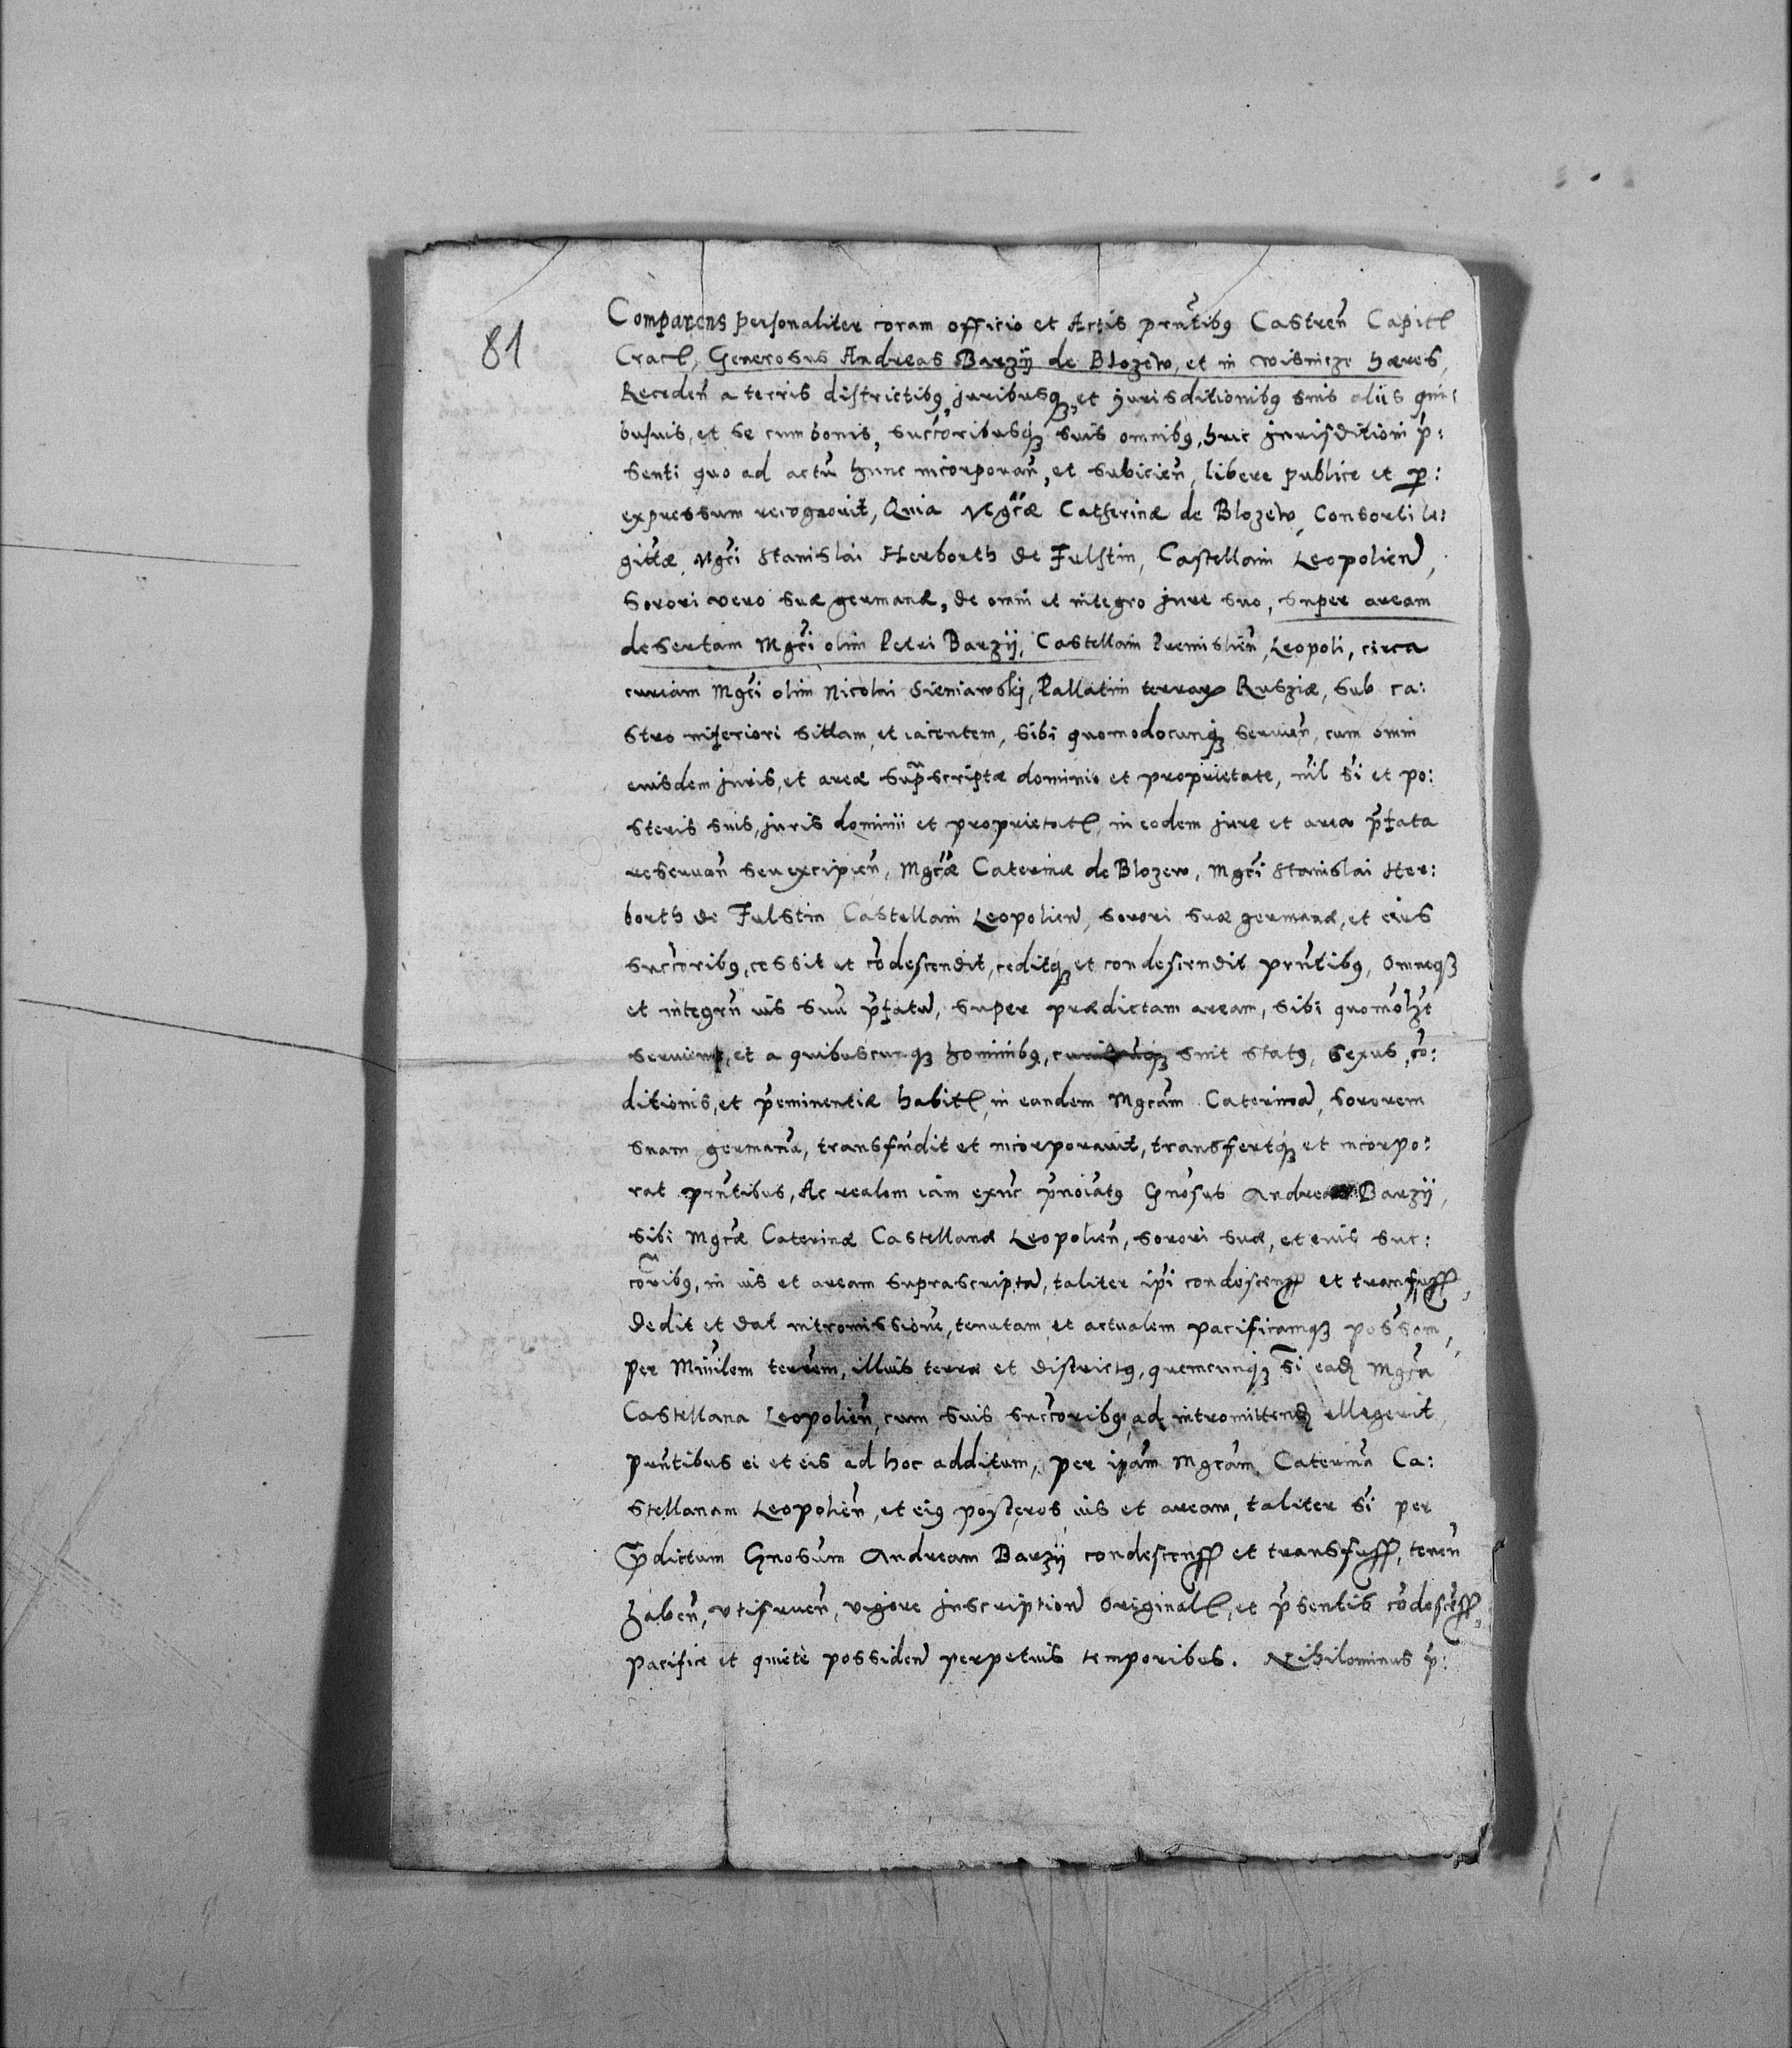 81
Comparens personaliter coram officio et Actis prñtibus Castreñ Capitl
Cracl, Generosus Andreas Barzÿ de Blozew, et in wisnicze hæres,
Recedeñ a terris districtibus, juribusq3, et jurisditionibus suis aliis qui:
busuis, et se cum bonis, succoribusq3 suis omnibus, huic jurisditioni p̃:
senti quo ad actũ hunc incorporañ, et subicieñ, libere publice et p:
expressum recognovit, Quia Mgc̃æ Catherinæ de Blozew, Consorti le:
gittæ, Mgc̃i Stanislai Herborth de Fulstin, Castellani Leopolien,
Sorori vero suæ germanæ, de omni et integro jure suo, super aream
desertam Mgc̃i olim Petri Barzij, Castellani Premislieñ, Leopoli, circa
curiam Mgc̃i olim Nicolai Sieniawskj, Pallatini terrarũ Rusziæ, sub ca:
stro inferiori sittam, et iacentem, sibi quomodocunq3 servieñ, cum omni
eiusdem juris, et areæ suprascriptæ dominio et proprietate, nil s̃i et po:
steris suis, juris dominii et proprietatl, in eodem jure et area p̃fata
reservañ seu excipieñ, Mgc̃æ Caterinæ de Blozew, Mgc̃i Stanislai Her:
borth de Fulstin Castellani Leopolien, sorori suæ germanæ, et eius
succoribus, cessit et cõdescendit, ceditq3 et condescendit prñtibus, Omneq3
et integrũ ius suũ p̃fatũ, super prædictam aream, sibi quomolzt
serviens, et a quibuscunq3 hominibus, cuiuscũq3 sint status, sexus, cõ:
ditionis, et p̃eminentiæ habitl, in eandem Mgcãm Caterinã, sororem
suam germanã, transfudit et incorporavit, transfertq3 et incorpo:
rat prñtibus, Ac realem iam exnũc p̃noiatus Gñosus Andreas Barzij,
sibi Mgc̃æ Caterinæ Castellanæ Leopolieñ, sorori suæ, et eius suc:
coribus, in ius et aream suprascriptã, taliter ip̃i condescenss et transfuss,
Dedit et dat intromissionẽ, tenutam et actualem pacificamq3 possom,
per Minĩlem terrẽm, illius terræ et districtus, quemcunq3 s̃i ead Mgc̃a
Castellana Leopolieñ, cum suis succoribus, ad intromittend ellegerit,
prñtibus ei et eis ad hoc additum, per ip̃am Mgcãm Caterinã Ca:
stellanam Leopolieñ, et eius posteros, ius et aream, taliter s̃i per
p̃dictum Gnosũm Andream Barzij condescenss et transfuss, teneñ
habeñ, utifrueñ, vigore jnscriptionũ originall, et p̃sentis cõdescẽss,
pacifice et quiete possiden perpetuis temporibus. Nihilominus p̃: